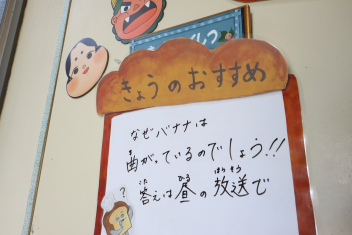 きょうのおすすめ
なぜバナナは
曲がっているのでしょう!!
答えは昼の放送で
?